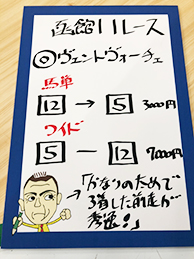 函館11レース
◎ヴェントヴォーチェ
馬単
12 → 5 3000円
ワイド
5 − 12 7000円
「かなりのためで
3着した前走が
秀逸!」